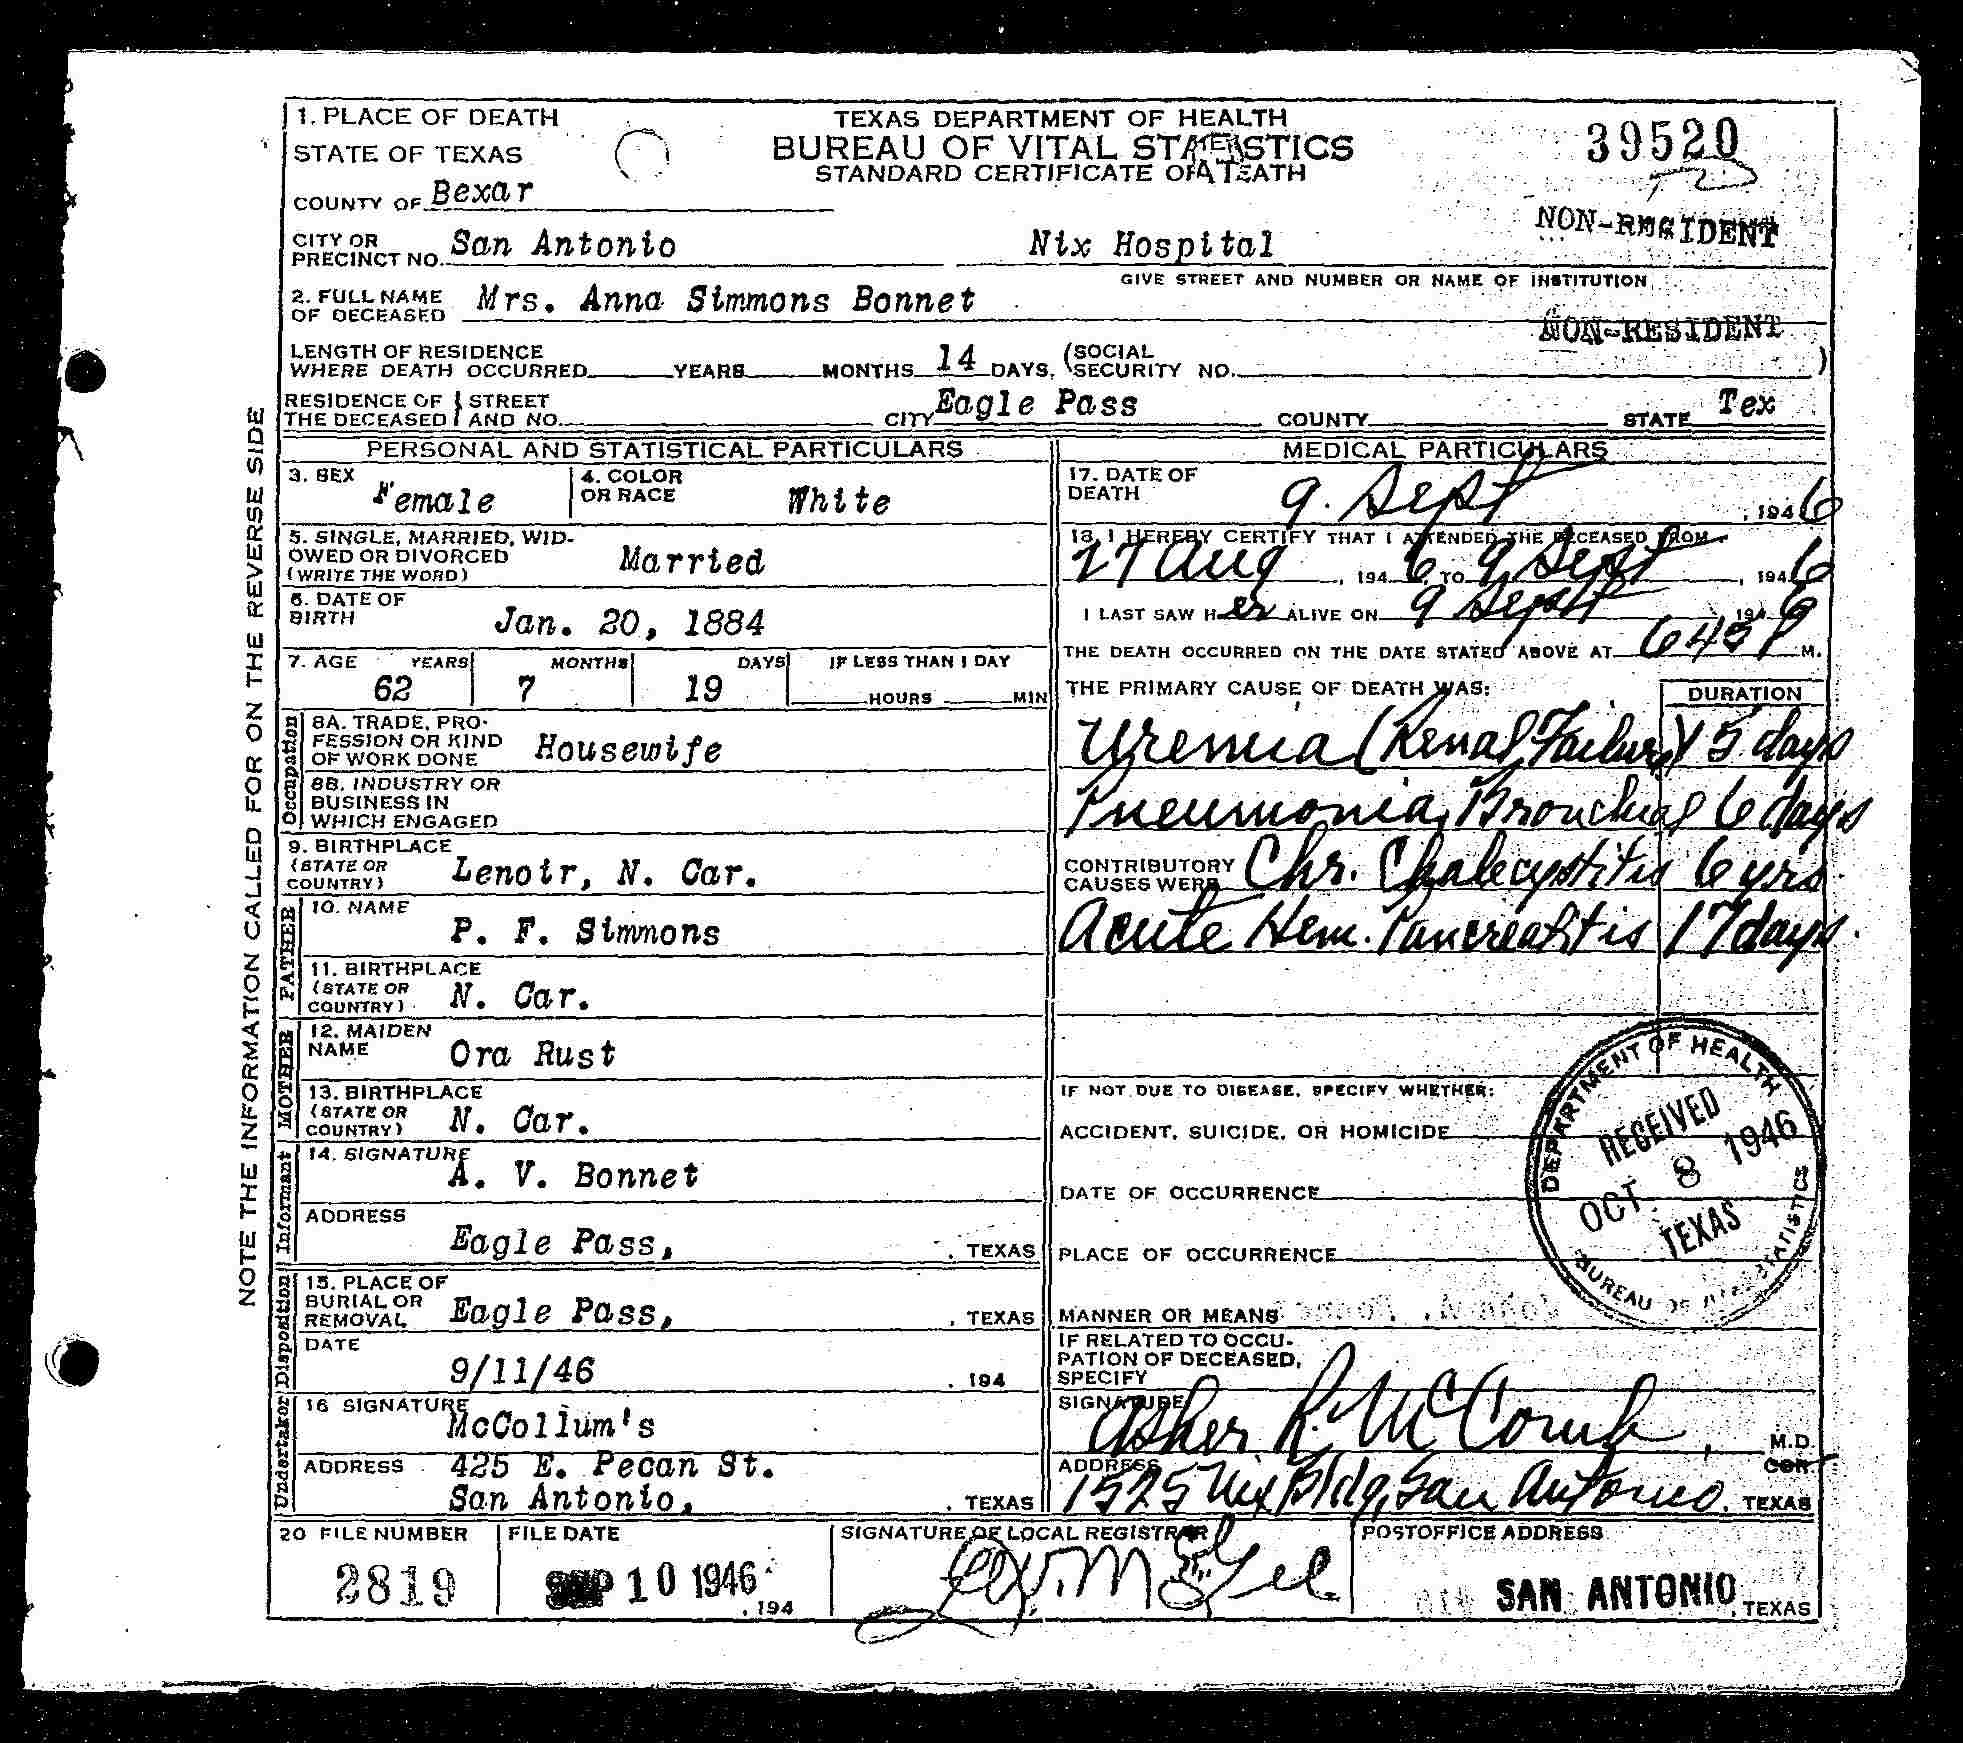 1. PLACE OF DEATH
STATE OF TEXAS
COUNTY OF Bexar
TEXAS DEPARTMENT OF HEALTH
BUREAU OF VITAL STATISTICS
STANDARD CERTIFICATE OF DEATH
39520
NON-RESIDENT
CITY OR PRECINCT NO. San Antonio Nix Hospital
GIVE STREET AND NUMBER OR NAME OF INSTITUTION
2. FULL NAME OF DECEASED Mrs. Anna Simmons Bonnet
NON-RESIDENT
LENGTH OF RESIDENCE WHERE DEATH OCCURRED YEARS MONTHS 14 DAYS. (SOCIAL SECURITY NO. )
RESIDENCE OF THE DECEASED } STREET AND NO. CITY Eagle Pass COUNTY STATE Tex
NOTE THE INFORMATION CALLED FOR ON THE REVERSE SIDE
PERSONAL AND STATISTICAL PARTICULARS
3. SEX Female 4. COLOR OR RACE White
5. SINGLE, MARRIED, WIDOWED OR DIVORCED (WRITE THE WORD) Married
6. DATE OF BIRTH Jan. 20, 1884
7. AGE YEARS MONTHS DAYS IF LESS THAN 1 DAY
62 7 19 HOURS MIN
Occupation
8A. TRADE, PROFESSION OR KIND OF WORK DONE Housewife
8B. INDUSTRY OR BUSINESS IN WHICH ENGAGED
9. BIRTHPLACE (STATE OR COUNTRY) Lenoir, N. Car.
FATHER
10. NAME P. F. Simmons
11. BIRTHPLACE (STATE OR COUNTRY) N. Car.
MOTHER
12. MAIDEN NAME Ora Rust
13. BIRTHPLACE (STATE OR COUNTRY) N. Car.
Informant
14. SIGNATURE A. V. Bonnet
ADDRESS Eagle Pass, , TEXAS
Disposition
15. PLACE OF BURIAL OR REMOVAL Eagle Pass, , TEXAS
DATE 9/11/46 , 194
Undertaker
16 SIGNATURE McCollum's
ADDRESS 425 E. Pecan St.
San Antonio, , TEXAS
MEDICAL PARTICULARS
17. DATE OF DEATH 9. Sept , 1946
18. I HEREBY CERTIFY THAT I ATTENDED THE DECEASED FROM
27 Aug , 1946 TO 9 Sept , 1946
I LAST SAW Her ALIVE ON 9 Sept 1946
THE DEATH OCCURRED ON THE DATE STATED ABOVE AT 645 P M.
THE PRIMARY CAUSE OF DEATH WAS: DURATION
Uremia (Renal Failure) 5 days
Pneumonia, Bronchial 6 days
CONTRIBUTORY CAUSES WERE Chr. Cholecystitis 6 yrs
Acute Hem. Pancreatitis 17 days.
IF NOT DUE TO DISEASE, SPECIFY WHETHER:
ACCIDENT, SUICIDE, OR HOMICIDE
DATE OF OCCURRENCE
PLACE OF OCCURRENCE
MANNER OR MEANS
DEPARTMENT OF HEALTH
RECEIVED
OCT 8 1946
TEXAS
BUREAU OF VITAL STATISTICS
IF RELATED TO OCCUPATION OF DECEASED, SPECIFY
SIGNATURE Asher R. McComb, M.D.
ADDRESS 1525 Nix Bldg, San Antonio, TEXAS
20 FILE NUMBER 2819
FILE DATE SEP 10 1946 , 194
SIGNATURE OF LOCAL REGISTRAR
POSTOFFICE ADDRESS SAN ANTONIO, TEXAS